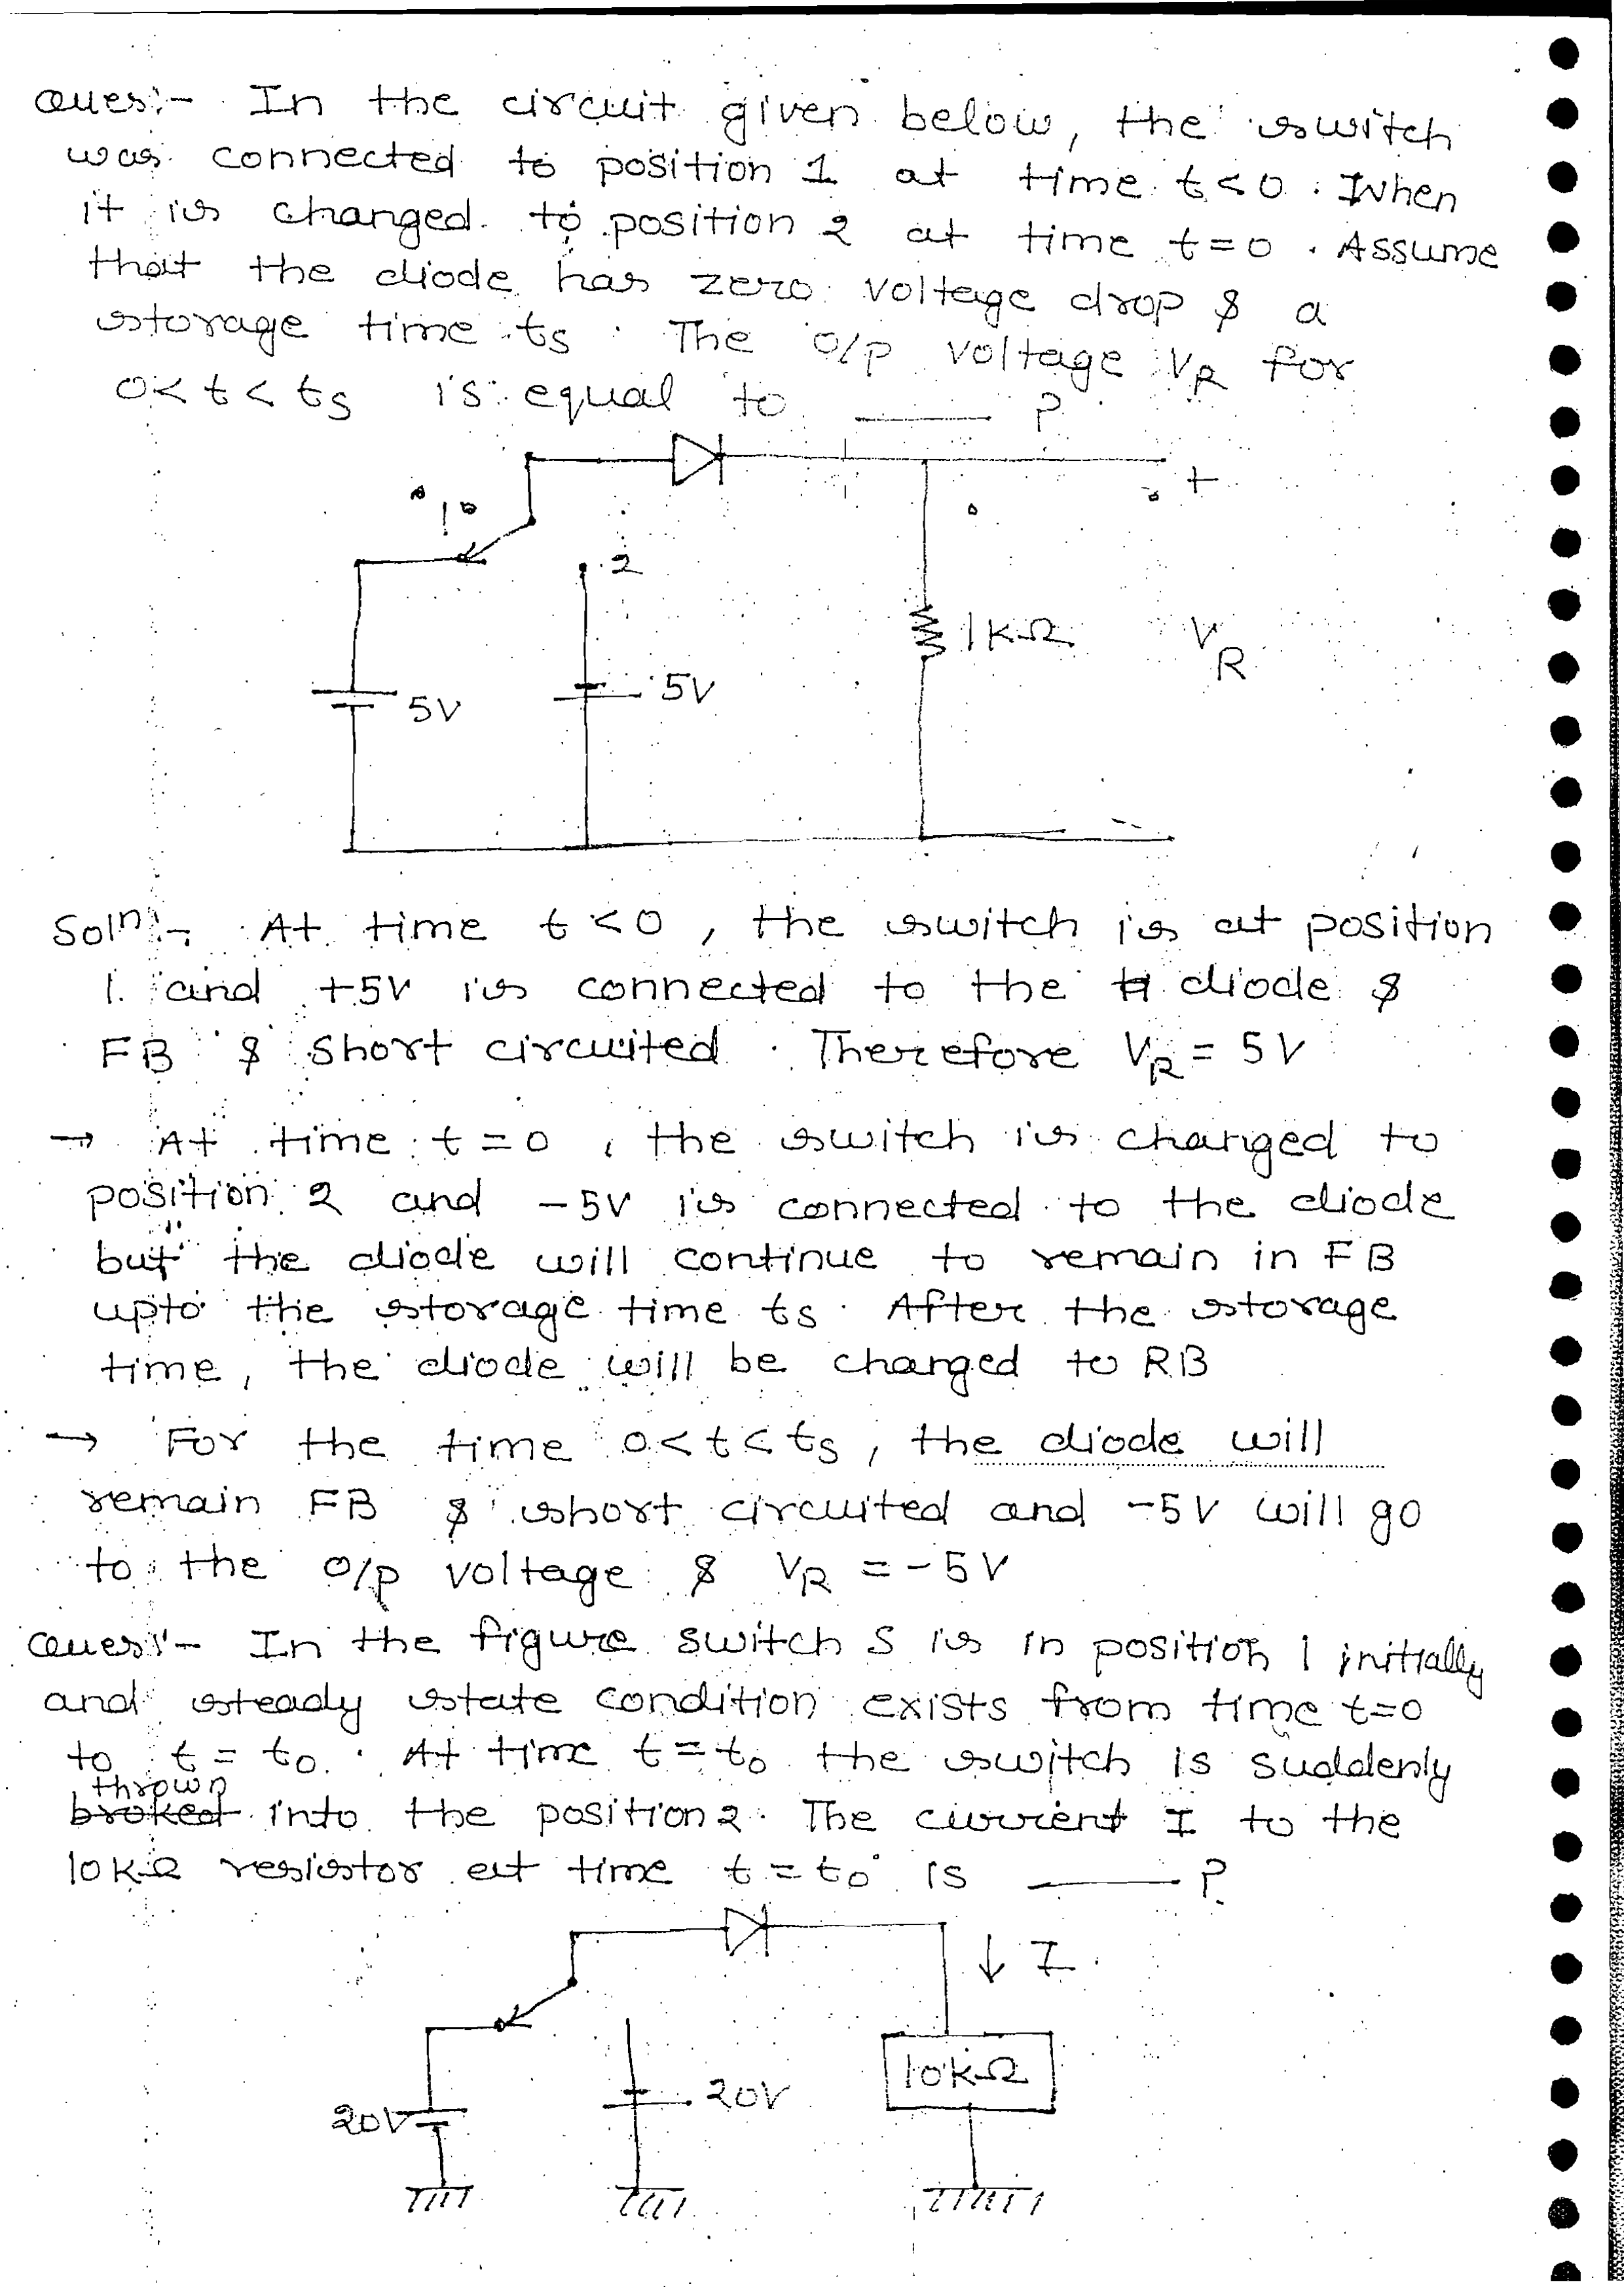 Ques:- In the circuit given below, the switch
was connected to position 1 at time t<0. When
it is changed to position 2 at time t=0. Assume
that the diode has zero voltage drop & a
storage time ts. The o/p voltage VR for
0<t<ts is equal to ______ ?
+
1
2
1KΩ
VR
5V
5V
Soln:- At time t<0, the switch is at position
1. and +5V is connected to the diode &
FB & short circuited. Therefore VR = 5V
→ At time t=0, the switch is changed to
position 2 and -5V is connected to the diode
but the diode will continue to remain in FB
upto the storage time ts. After the storage
time, the diode will be changed to RB
→ For the time 0<t<ts, the diode will
remain FB & short circuited and -5V will go
to the o/p voltage & VR = -5V
Ques:- In the figure switch S is in position 1 initially
and steady state condition exists from time t=0
to t=t0. At time t=t0 the switch is suddenly
thrown
broked into the position 2. The current I to the
10KΩ resistor at time t=t0 is ______ ?
↓ I
10KΩ
20V
20V